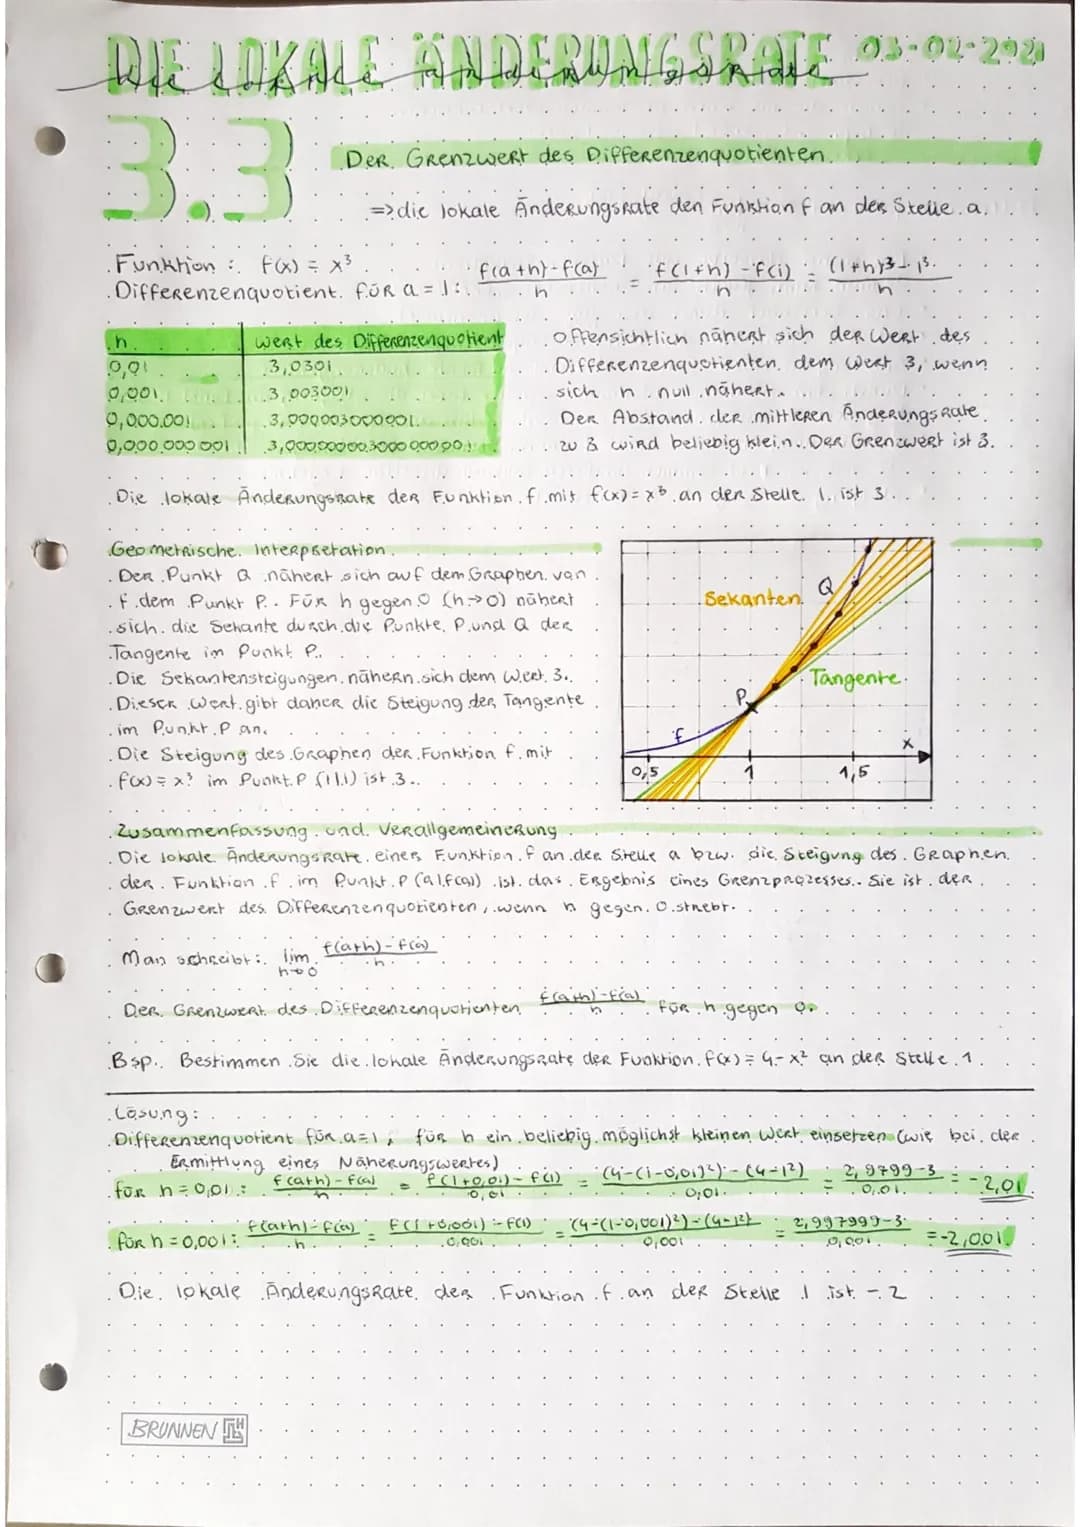 DIE LOKALE ÄNDERUNGSRATE 03-02-2021
Die lokale Änderungsrate
3.3
Der Grenzwert des Differenzenquotienten
=> die lokale Änderungsrate den Funktion f an der Stelle a.
Funktion: f(x) = x³
Differenzenquotient für a = 1: f(a+h)-f(a) / h = f(1+h)-f(1) / h = (1+h)³-1³ / h
h | Wert des Differenzenquotient
0,01 | 3,0301
0,001 | 3,003001
0,000.001 | 3,000003000001
0,000.000.001
Offensichtlich nähert sich der Wert des
Differenzenquotienten dem Wert 3, wenn
sich h null nähert.
Der Abstand der mittleren Änderungsrate
zu 3 wird beliebig klein. Der Grenzwert ist 3.
Die lokale Änderungsrate der Funktion f mit f(x) = x³ an der Stelle 1 ist 3.
Geometrische Interpretation
Der Punkt Q nähert sich auf dem Graphen von
f dem Punkt P. Für h gegen 0 (h→0) nähert
sich die Sekante durch die Punkte P und Q der
Tangente im Punkt P.
Die Sekantensteigungen nähern sich dem Wert 3.
Dieser Wert gibt daher die Steigung der Tangente
im Punkt P an.
Die Steigung des Graphen der Funktion f mit
f(x) = x³ im Punkt P (1|1) ist 3.
Sekanten
Q
Tangente
P
f
x
0,5 1 1,5
Zusammenfassung und Verallgemeinerung
Die lokale Änderungsrate einer Funktion f an der Stelle a bzw. die Steigung des Graphen
der Funktion f im Punkt P (a|f(a)) ist das Ergebnis eines Grenzprozesses. Sie ist der
Grenzwert des Differenzenquotienten, wenn h gegen 0 strebt.
Man schreibt: lim h→0 f(a+h)-f(a) / h
Der Grenzwert des Differenzenquotienten f(a+h)-f(a) / h für h gegen 0.
Bsp.: Bestimmen Sie die lokale Änderungsrate der Funktion f(x) = 4-x² an der Stelle 1.
Lösung:
Differenzenquotient für a=1, für h ein beliebig möglichst kleinen Wert einsetzen (wie bei der
Ermittlung eines Näherungswertes)
für h = 0,01: f(a+h)-f(a) / h = f(1+0,01)-f(1) / 0,01 = (4-(1-0,01)²)-(4-1²) / 0,01 = 2,9799-3 / 0,01 = -2,01
für h = 0,001: f(a+h)-f(a) / h = f(1+0,001)-f(1) / 0,001 = (4-(1-0,001)²)-(4-1²) / 0,001 = 2,997999-3 / 0,001 = -2,001
Die lokale Änderungsrate der Funktion f an der Stelle 1 ist -2
BRUNNEN